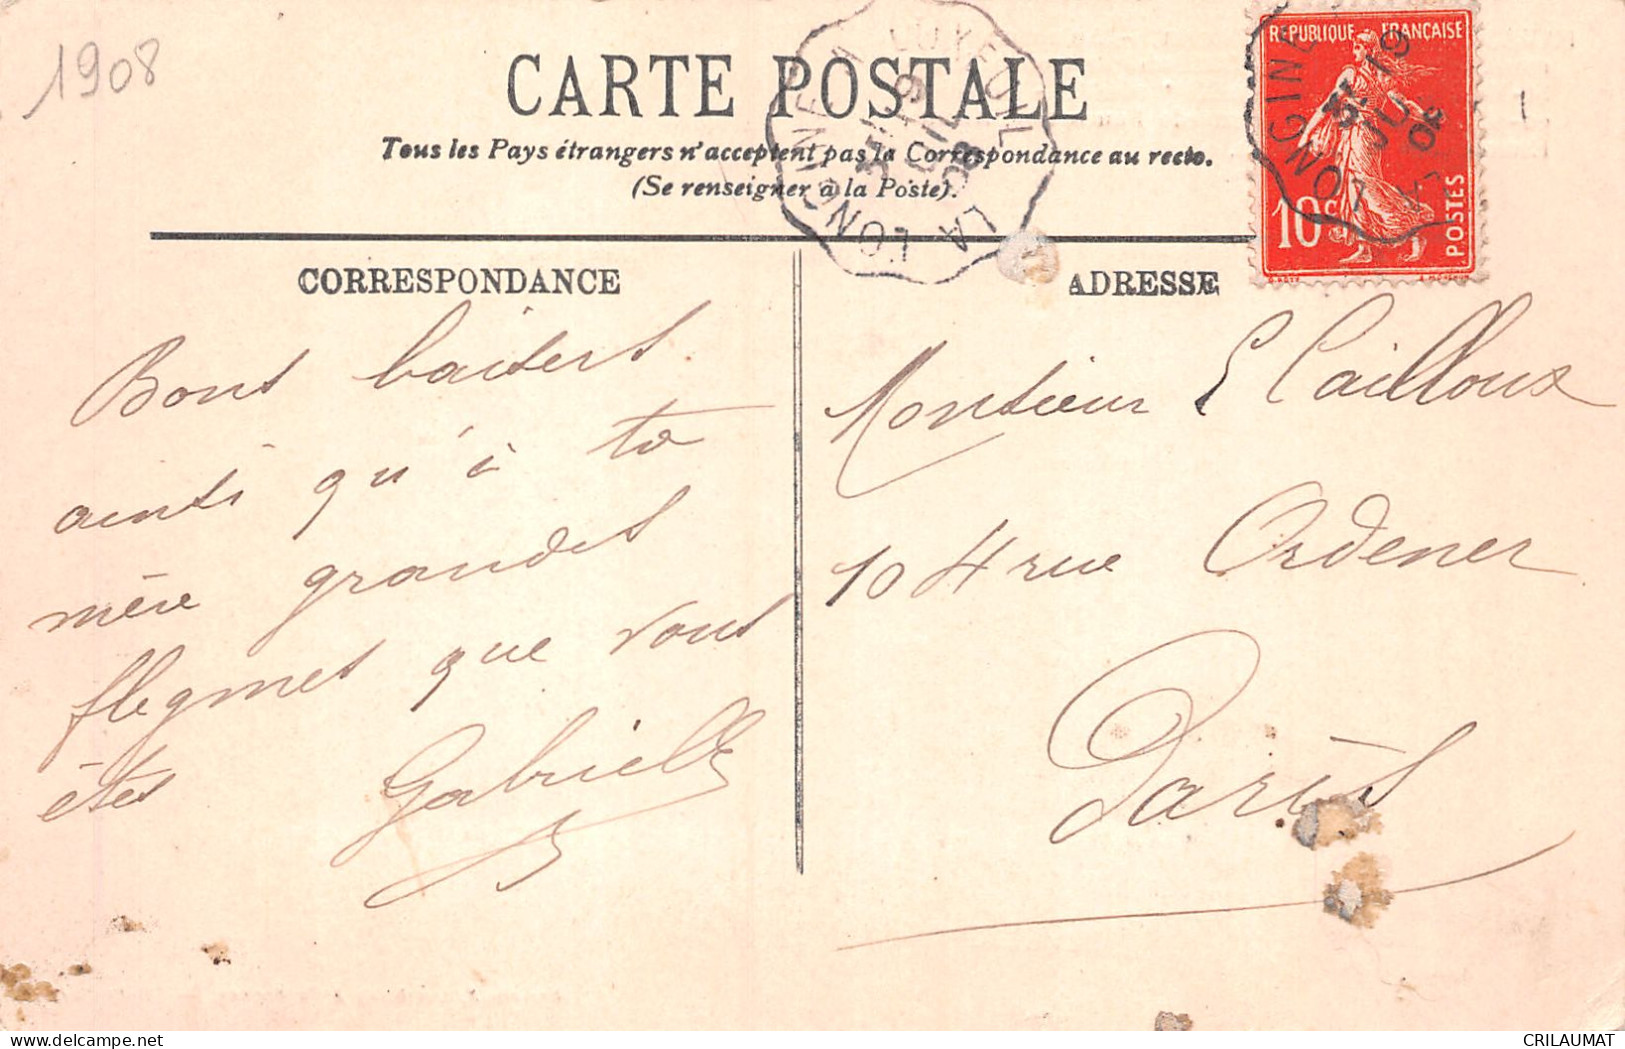 1908
CARTE POSTALE
Tous les Pays étrangers n'acceptent pas la Correspondance au recto.
(Se renseigner à la Poste).
LONGINE A LUXEUIL LA
31 19
JUIL
08
REPUBLIQUE FRANÇAISE
10c
POSTES
LONGINE
31 19
08
CORRESPONDANCE
ADRESSE
Bons baisers
ainsi qu'à ta
mère grandes
flegmes que vous
êtes Gabrielle
Monsieur E Cailloux
104 rue Ordener
Paris
CRILAUMAT